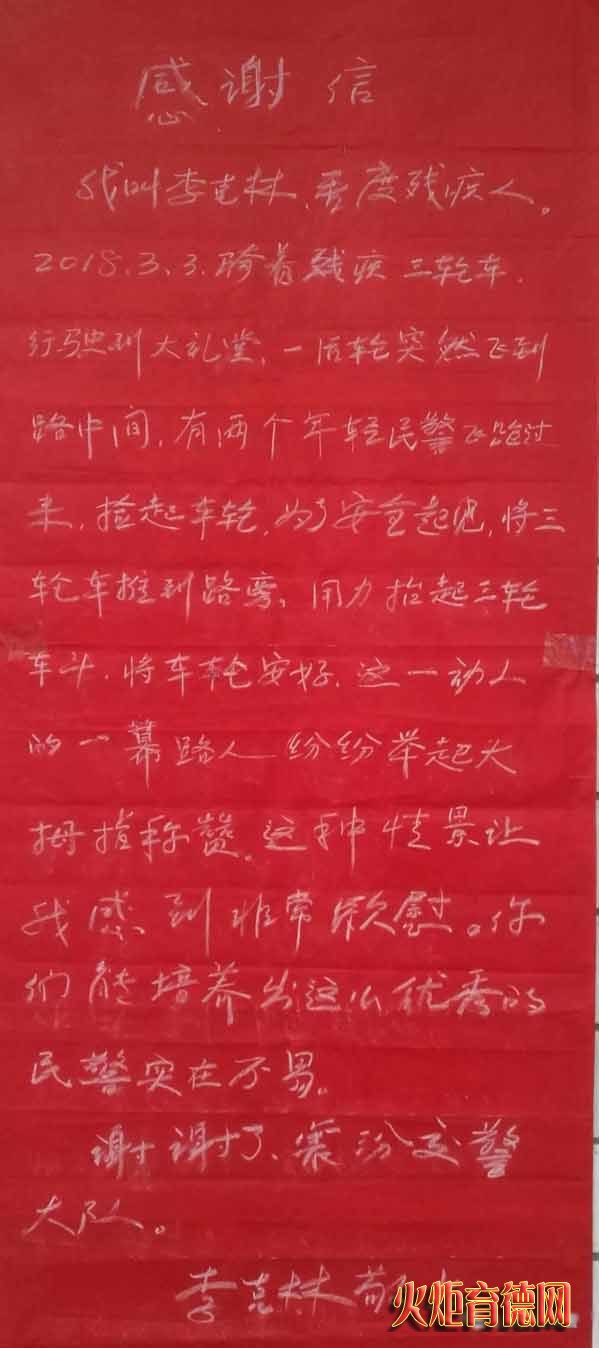 感谢信
我叫李克林、重度残疾人。
2018.3.3.骑着残疾三轮车.
行驶到大礼堂、一后轮突然飞到
路中间,有两个年轻民警飞跑过
来,捡起车轮,为了安全起见,将三
轮车推到路旁、用力抬起三轮
车斗.将车轮安好、这一动人
的一幕路人纷纷举起大
拇指称赞。这种情景让
我感到非常欣慰。你
们能培养出这么优秀的
民警实在不易。
谢谢了、襄汾交警
大队。
李克林
火炬育德网